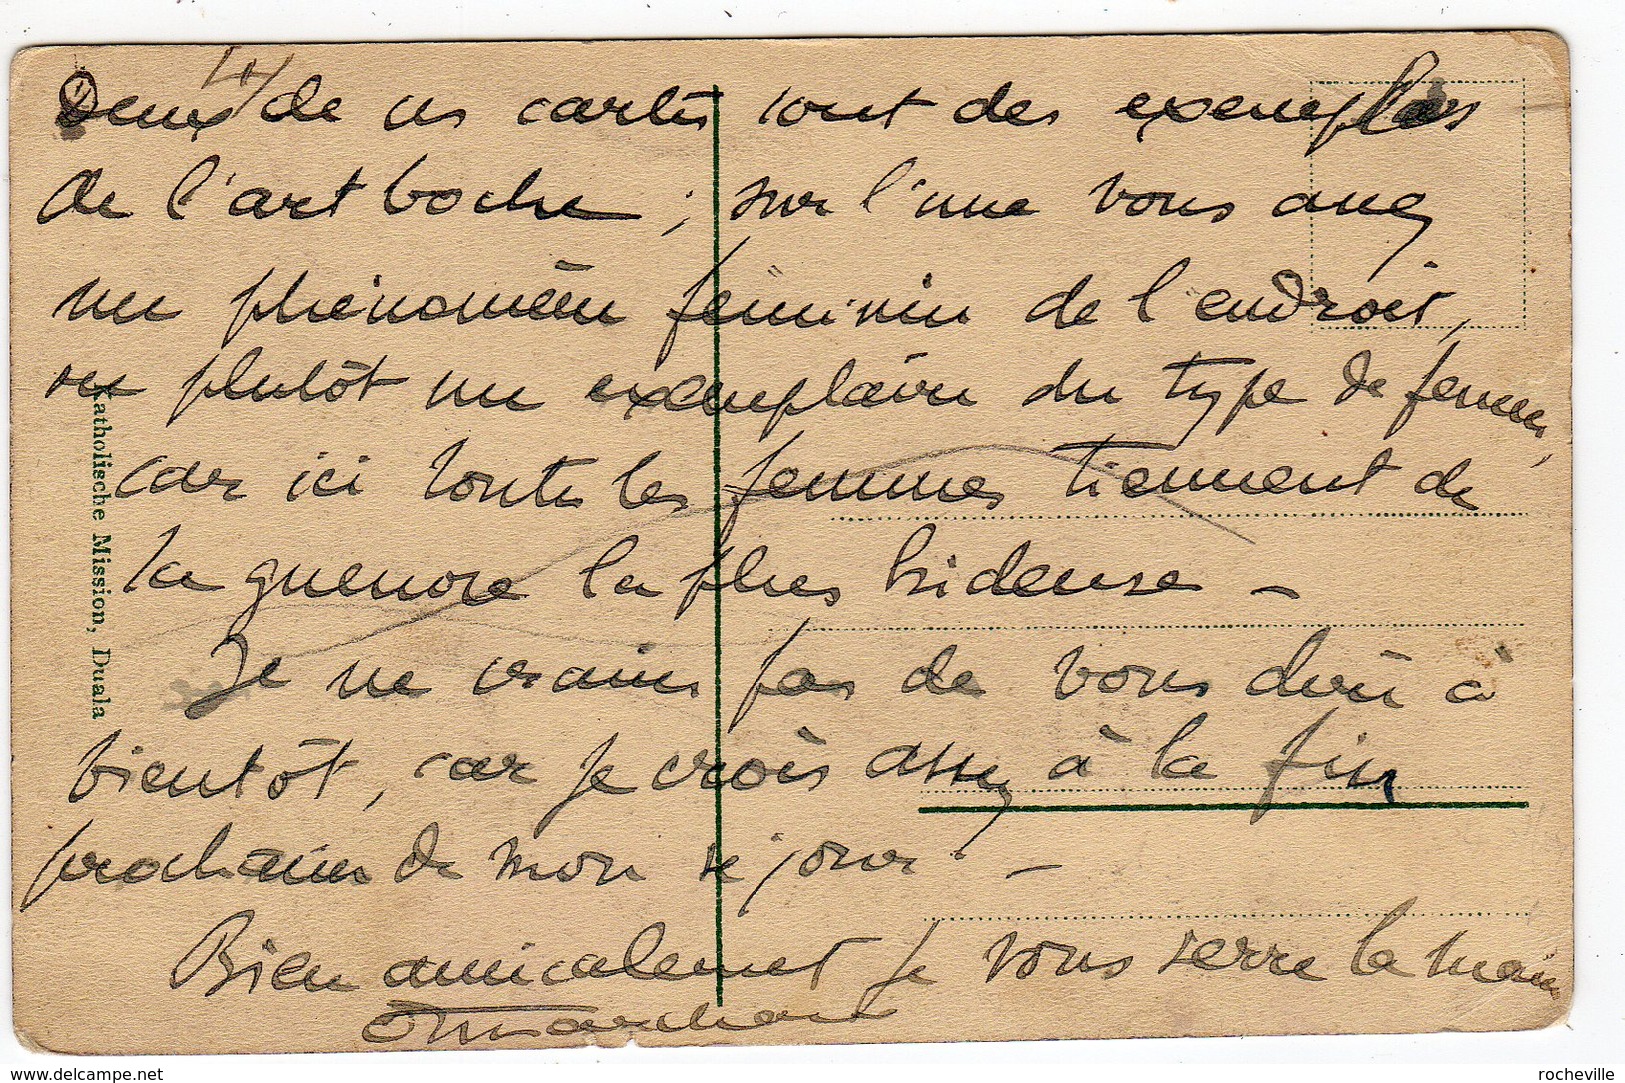 Deux de ces cartes sont des exemplaires
de l'art boche ; sur l'une vous avez
un phénomène féminin de l'endroit,
ou plutôt un exemplaire du type de femmes,
car ici toutes les femmes tiennent de
la guenon la plus hideuse –
Je ne crains pas de vous dire à
bientôt, car je crois assez à la fin
prochaine de mon séjour. –
Bien amicalement je vous serre la main
Katholische Mission, Duala
delcampe.net
rocheville